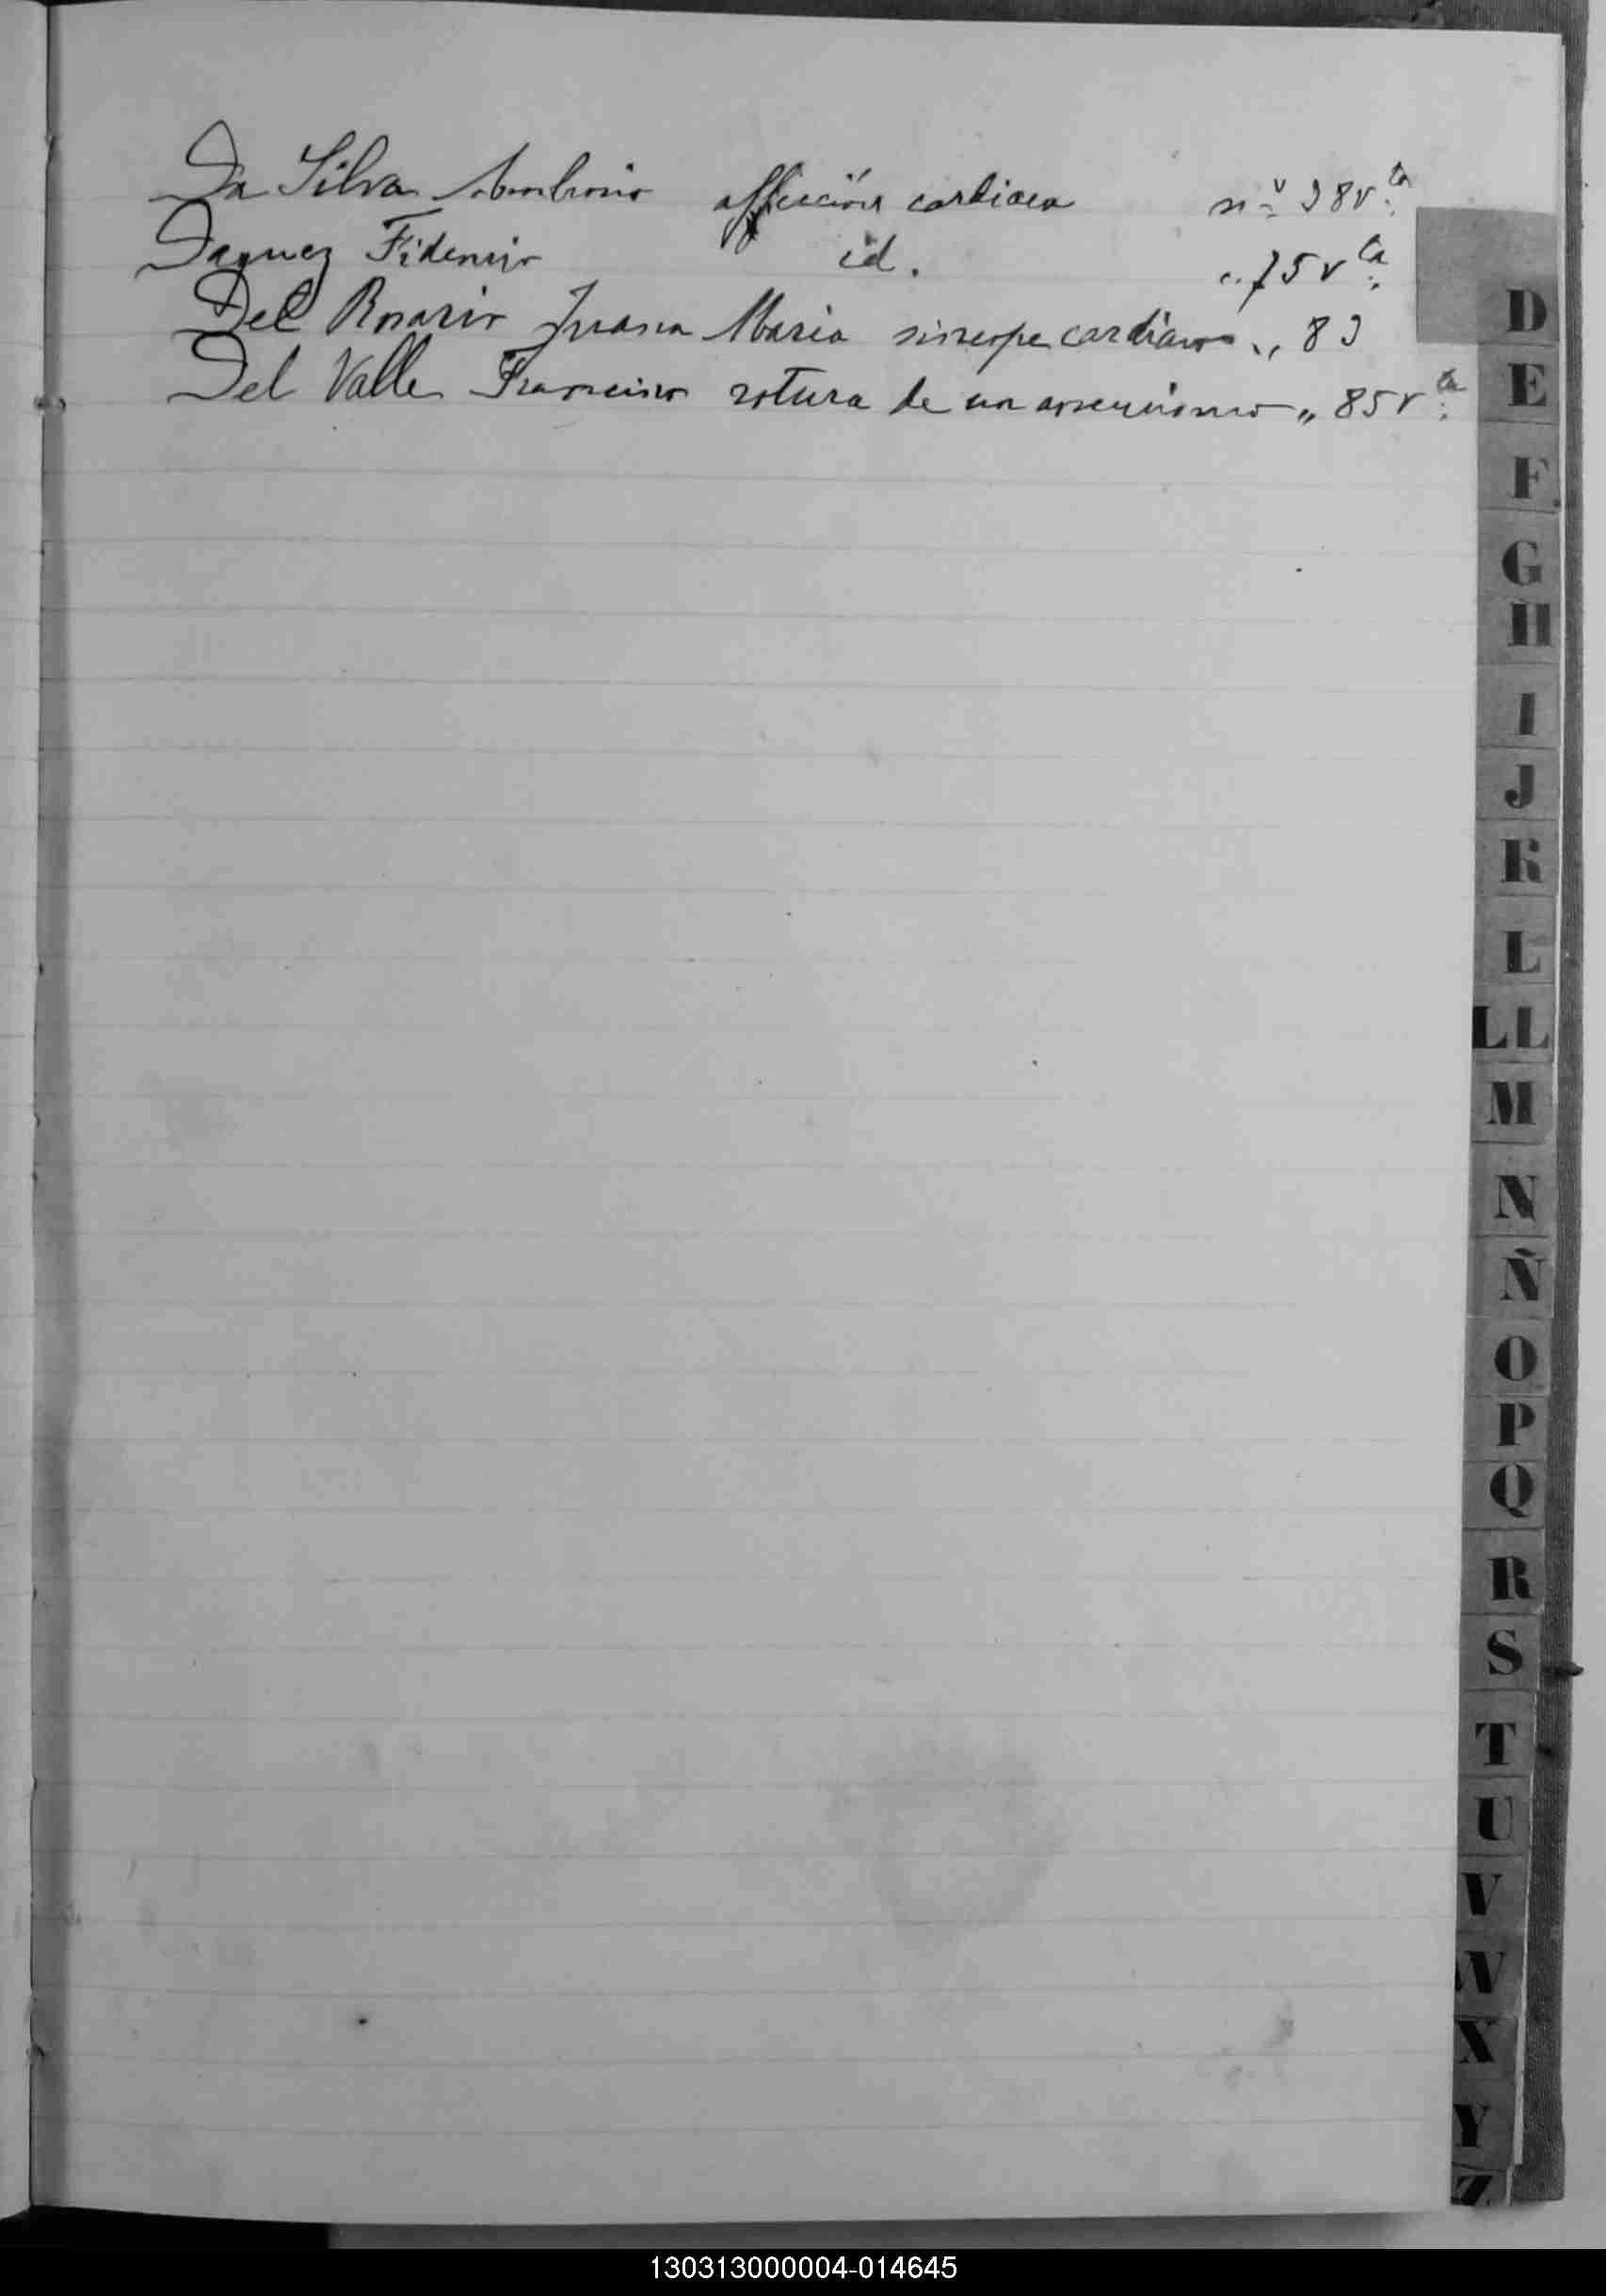 Da Silva Ambrosio affección cardiaca nº 98 v.ta
Daguez Fidencio id. „ 75 v.ta
Del Rosario Juana Maria sincope cardiaco „ 89
Del Valle Francisco rotura de un „ 85 v.ta
D
E
F
G
H
I
J
K
L
LL
M
N
Ñ
O
P
Q
R
S
T
U
V
W
X
Y
Z
130313000004-014645